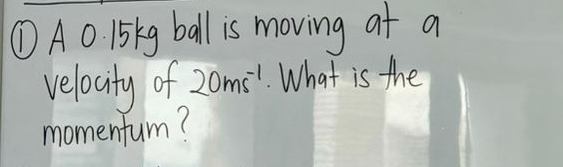 ① A 0.15kg ball is moving at a
velocity of 20ms⁻¹. What is the
momentum?